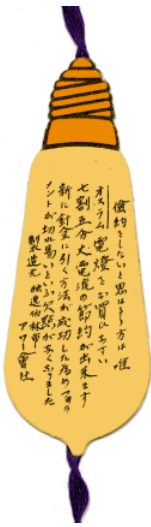 儉約をしたいと思はるゝ方は唯
オスラム電燈をお買ひなさい
七割五分丈電流の節約が出来ます
新に針金に引く方法が成功した為めフヰラ
メントが切れ易いといふ欠点がなくなりました
製造元 独逸伯林市
アワー會社